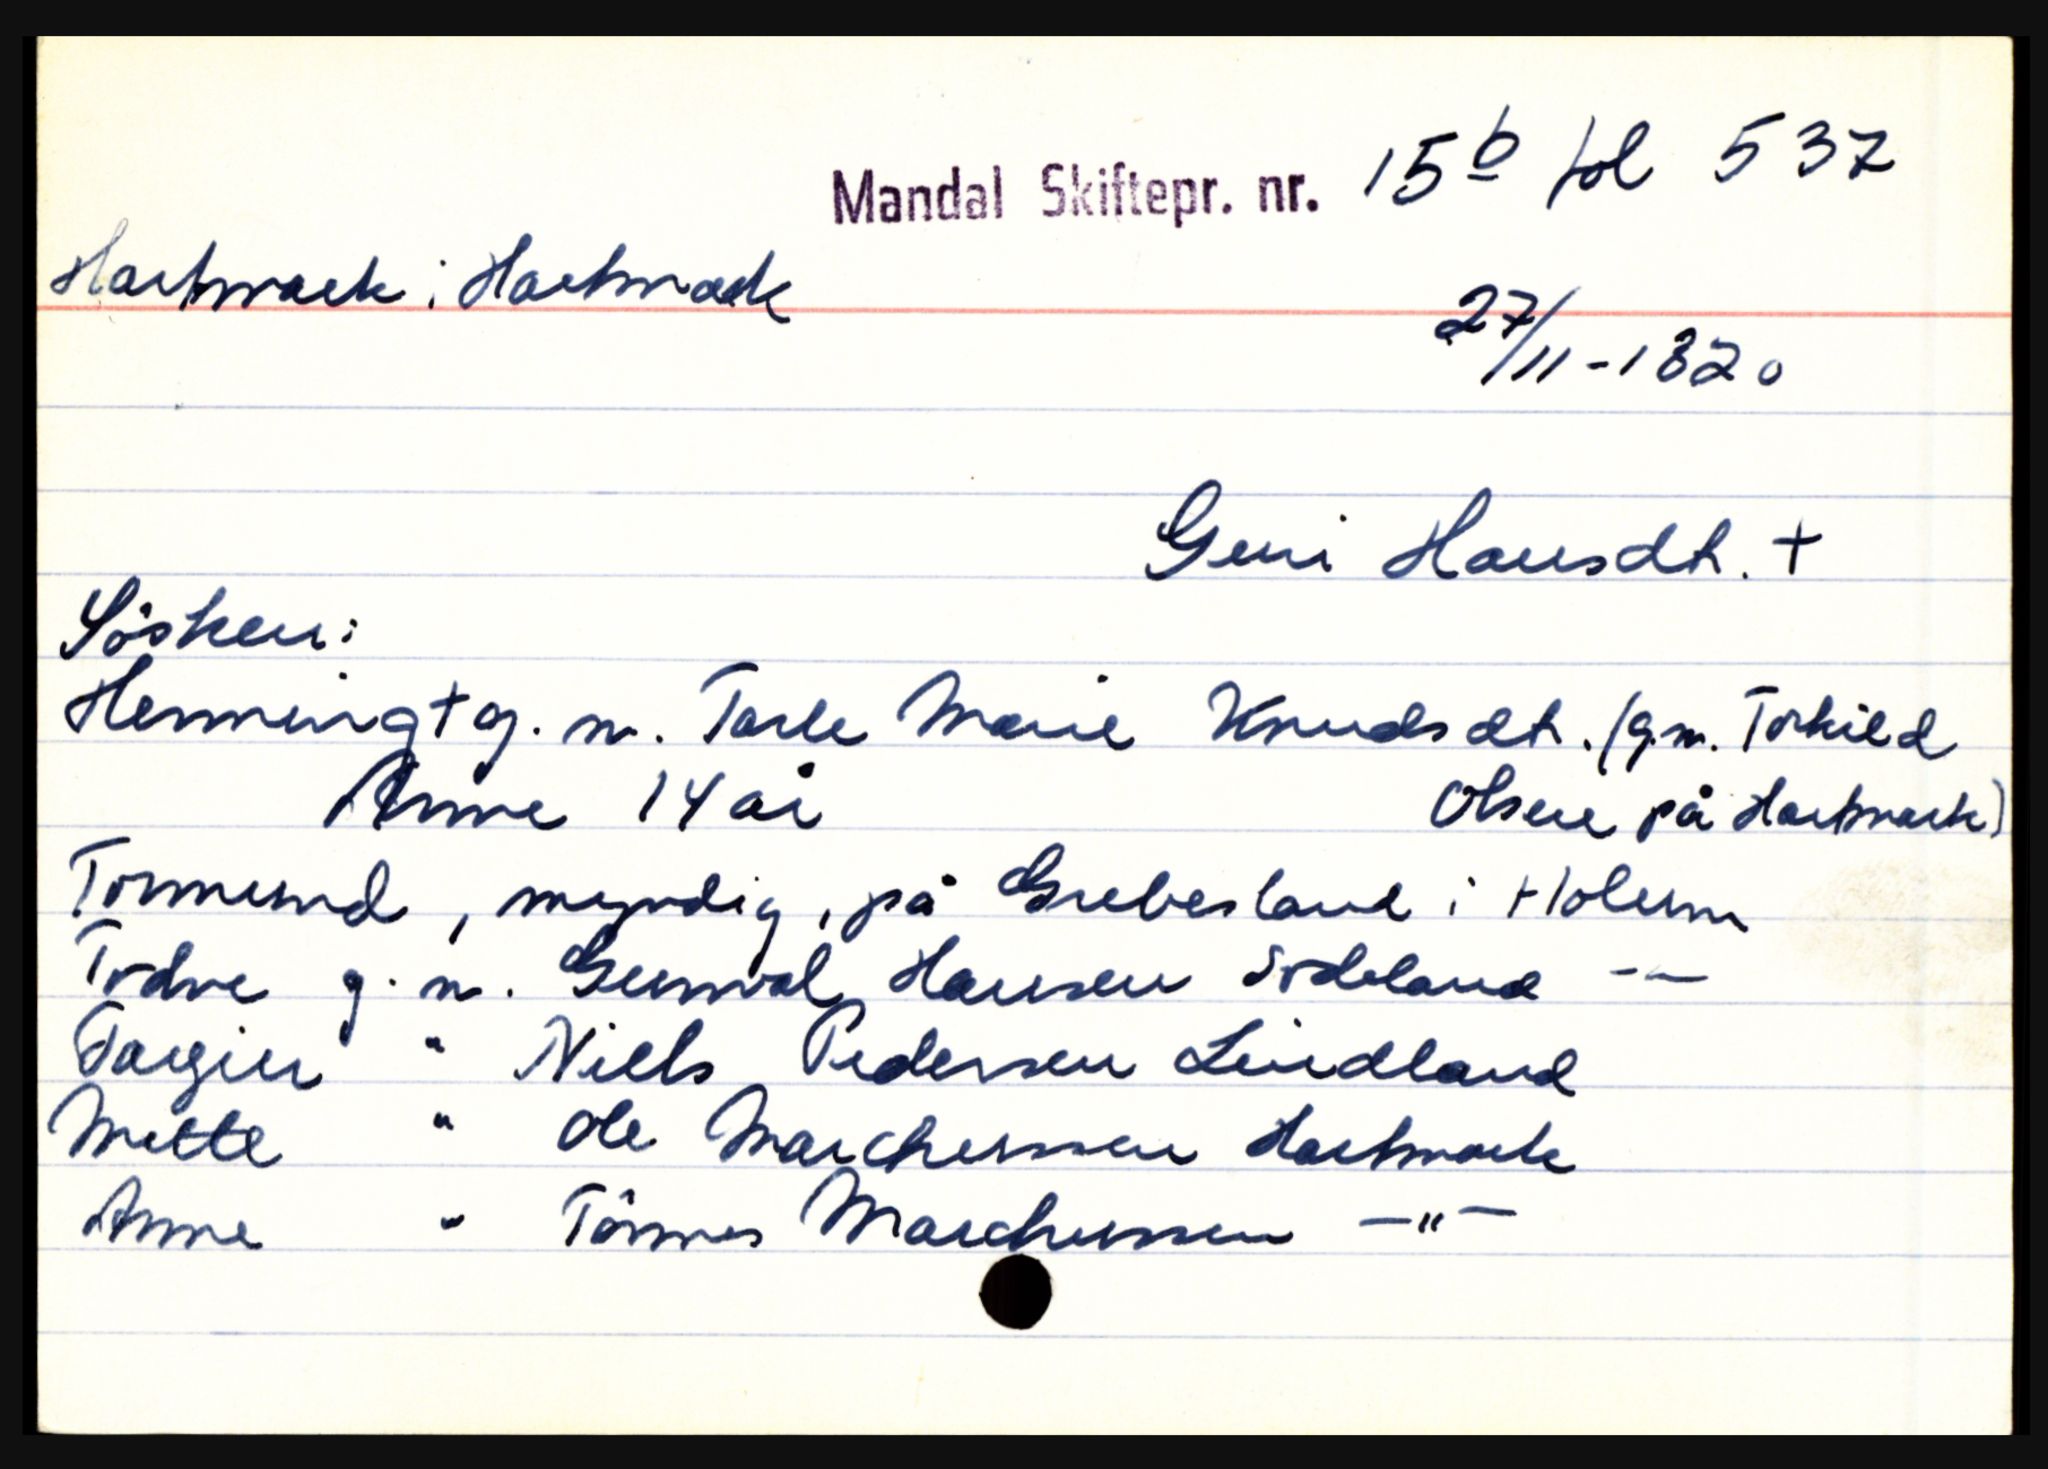 Mandal Skiftepr. nr. 15 b fol 537
Hartmark i Hartmark
27/11-1820
Geni Hansdt. +
Søsken:
Henning + g. m. Tarle Marie Knudsdt. (g.m. Torkild
Anne 14 år Olsen på Hartmark)
Tormund, myndig, på Grebesland i Holum
Todne g. m. Gunval Hansen Sodeland -"-
Targier " Niels Pedersen Lindland
Mette " Ole Marchussen Hartmark
Anne " Tönnes Marchussen -"-